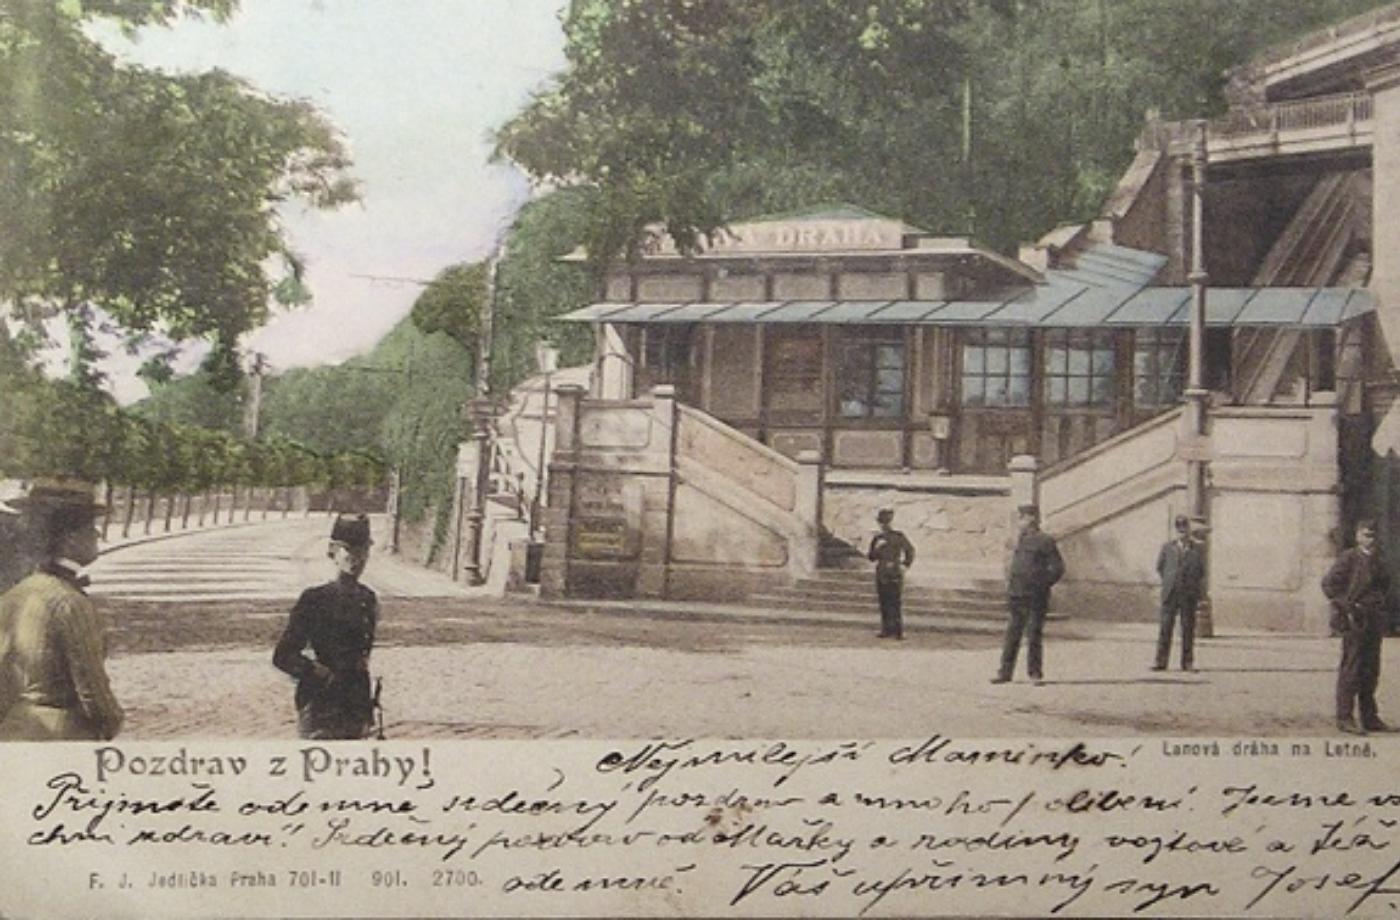 DRÁHA
Pozdrav z Prahy!
Lanová dráha na Letně.
Nejmilejší Maminko!
Přijměte odemně srdečný pozdrav a mnoho políbení. Jsme v
chni zdraví! Srdečný pozdrav od Mařky a rodiny vojtově a též
odemně. Váš upřímný syn Josef
F. J. Jedlička Praha 701-II 901. 2700.